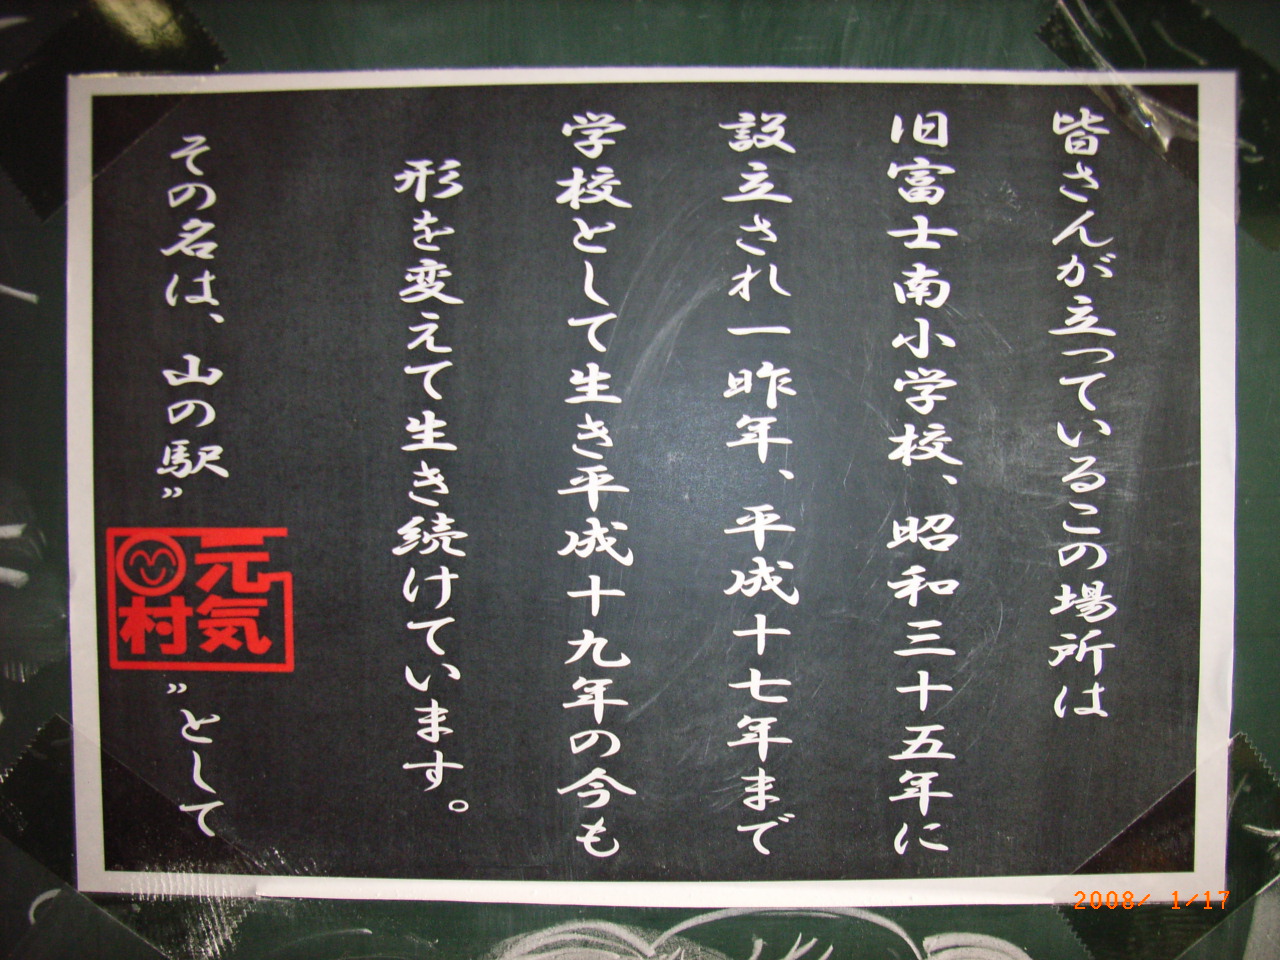 皆さんが立っているこの場所は
旧富士南小学校、昭和三十五年に
設立され一昨年、平成十七年まで
学校として生き平成十九年の今も
形を変えて生き続けています。
その名は、山の駅〃元気村〃として
2008/ 1/17